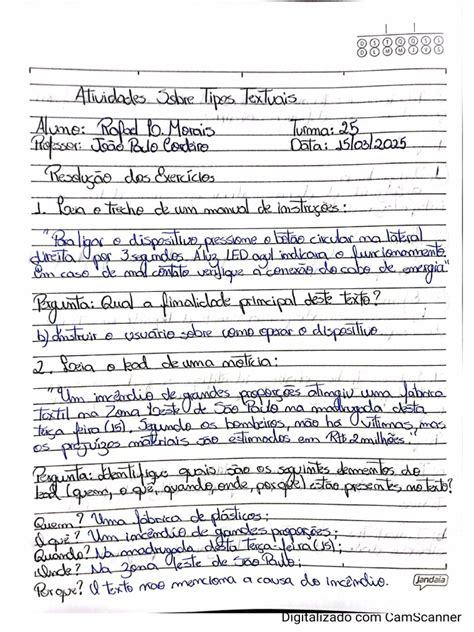 D S T Q Q S S
D L M M J V S
Atividades Sobre Tipos Textuais
Aluno: Rafael O. Morais Turma: 25
Professor: João Paulo Cordeiro Data: 15/03/2025
Resolução dos Exercícios
1. Leia o trecho de um manual de instruções:
"Para ligar o dispositivo, pressione o botão circular na lateral
direita por 3 segundos. A luz LED azul indicara o funcionamento.
Em caso de mal contato verifique a conexão do cabo de energia"
Pergunta: Qual a finalidade principal deste texto?
b) Instruir o usuário sobre como operar o dispositivo.
2. Leia o lead de uma notícia:
"Um incêndio de grandes proporções atingiu uma fábrica
têxtil na Zona Leste de São Paulo na madrugada desta
terça feira (15). Segundo os bombeiros, não há vítimas, mas
os prejuízos materiais são estimados em R$ 2 milhões."
Pergunta: Identifique quais são os seguintes elementos do
lead (quem, o quê, quando, onde, por quê) estão presentes, no texto?
Quem? Uma fábrica de plásticos;
O quê? Um incêndio de grandes proporções;
Quando? Na madrugada desta terça-feira (15);
Onde? Na Zona Leste de São Paulo;
Por quê? O texto não menciona a causa do incêndio.
Jandaia
Digitalizado com CamScanner